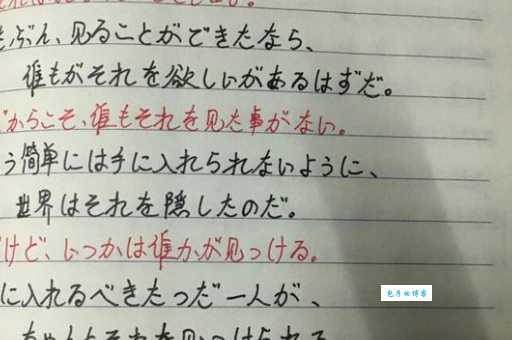 ぶん、見ることができたなら、
誰もがそれを欲しいがあるはずだ。
からこそ、誰もそれを見た事がない。
う簡単には手に入れられないように、
世界はそれを隠したのだ。
けど、いつかは誰かが見つける。
に入れるべきたった一人が、
ちゃんとそれを見つけられる
包子的博客